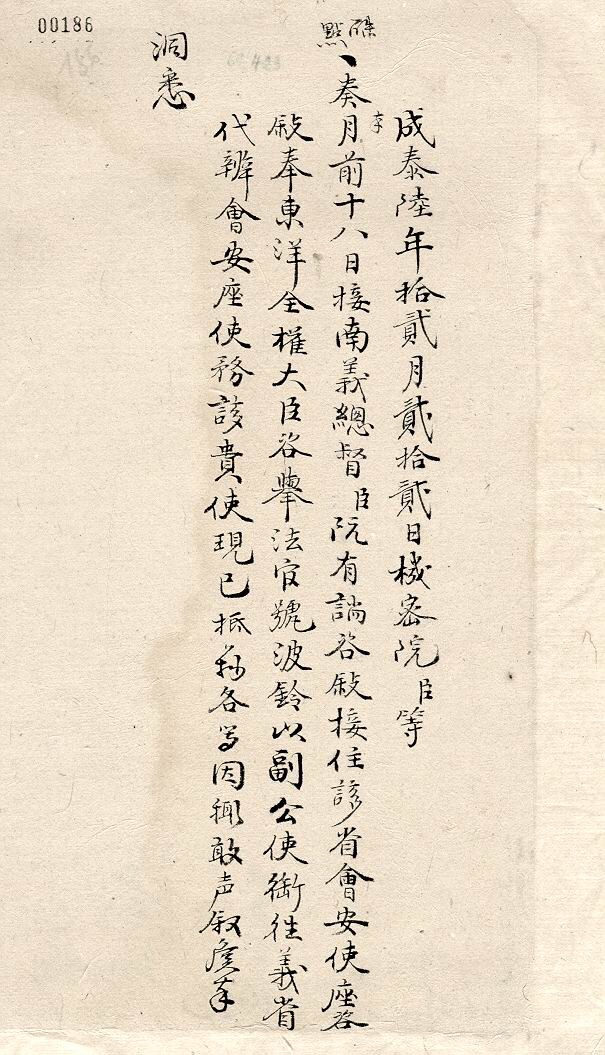 00186
成泰陸年拾貳月貳拾貳日機密院臣等
硃點
奏月前十八日接南義總督臣阮有誚咨敍接住該省會安使座咨
本
敍奉東洋全權大臣咨舉法官號波鈴以副公使銜徃義省
代辦會安座使務該貴使現已抵莅各等因輒敢声叙候奉
洞悉